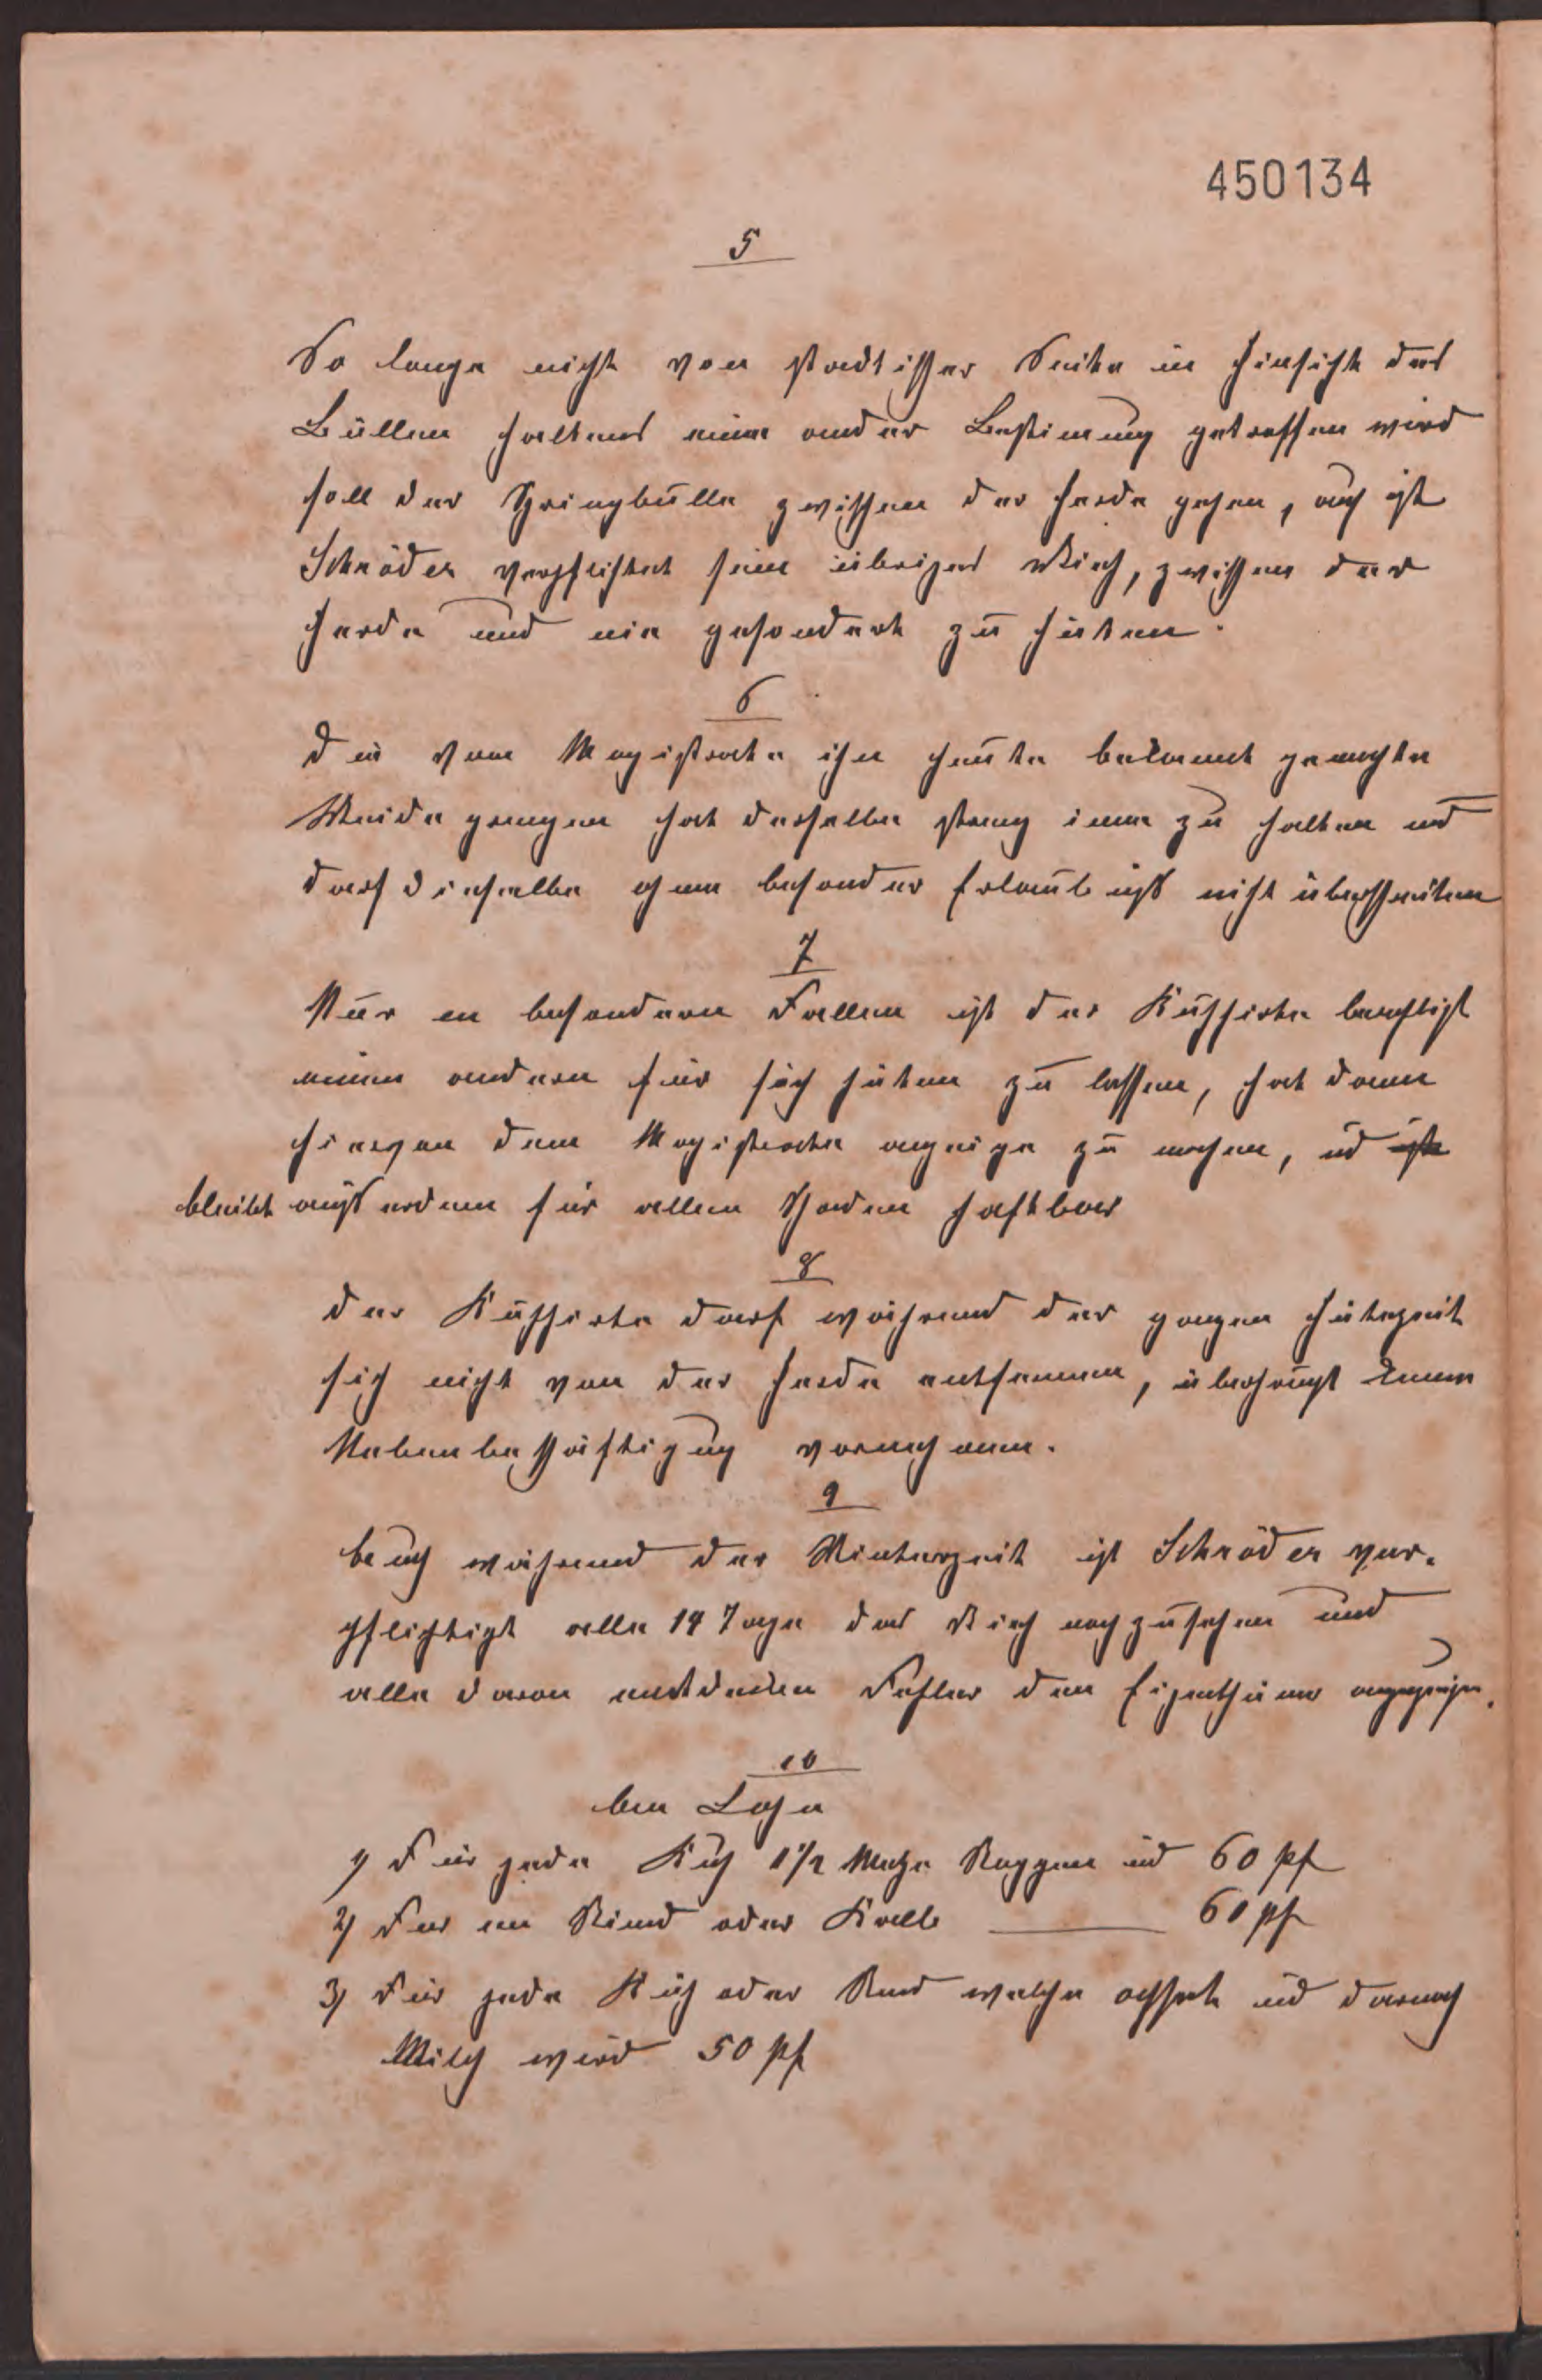 450134
5
So lange nicht von stadtischer Seite in Hinsicht des
Bullen haltens eine ander Bestimung getroffen wird
soll der Springbulle zwischen der Herde gehen, auch ist
Schröder verpflichtet sein übriges Vieh, zwischen der
Herde und nie gesondert zu hüten.
6
Die vom Magistrate ihn heute bekannt gemachte
Weide grenzen hat derselbe streng inne zu halten und
darf dieselbe ohne besonder Erlaubniß nicht überschreiten
7
Nur en besondern Fallen ist der Kuhhirte berechtigt
einen andern für sich hüten zu lassen, hat dann
hiervon dem Magistrate anzeige zu machen, ud ist
bleibt außerdem für allen Schaden haftbar
8
Der Kuhhirte darf während der ganzen Hütezeit
sich nicht von der Herde entfernen, überhaupt keine
Nebenbeschäftigung vornehmen.
9
Auch während der Winterzeit ist Schröder ver-
pflichtigt alle 14 Tage das Vieh nachzusehen und
alle daran entdeckten Fehler den Eigenthümer anzuzeigen.
10
An Lohn
1) Für jede Kuh 1 1/2 Metze Roggen ud 60 pf
2) Fur en Rind oder Kalb 60 pf
3) Für jede Kuh oder Rind welche ochset ud darnach
Milch wird 50 pf